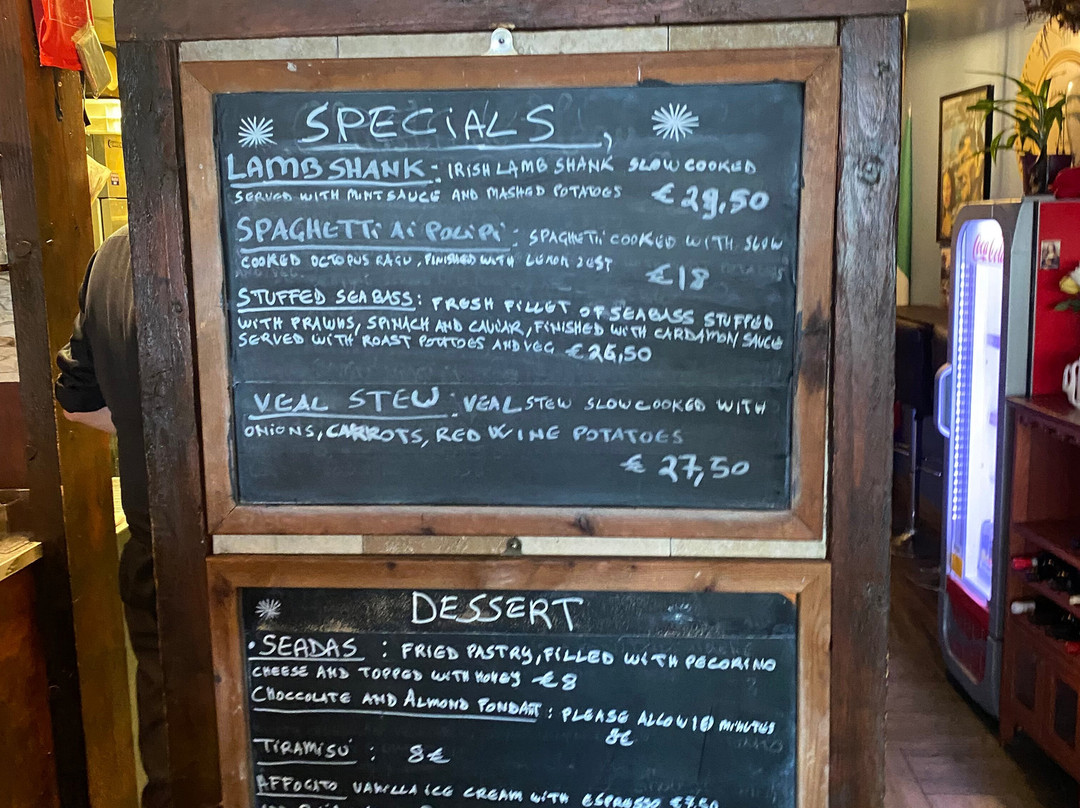 SPECiALS
LAMB SHANK - IRISH LAMB SHANK SLOW COOKED
SERVED WITH MINT SAUCE AND MASHED POTATOES €29,50
SPAGHETTi Ai POLiPi : SPAGHETTi COOKED WITH SLOW
COOKED OCTOPUS RAGU, FINISHED WITH LEMON ZEST
€18
STUFFED SEABASS: FRESH FILLET OF SEABASS STUFFED
WITH PRAWNS, SPINACH AND CAVIAR, FINISHED WITH CARDAMON SAUCE
SERVED WITH ROAST POTATOES AND VEG €26,50
VEAL STEW : VEAL STEW SLOW COOKED WITH
ONIONS, CARROTS, RED WINE POTATOES
€ 27,50
DESSERT
• SEADAS : FRIED PASTRY, FILLED WITH PECORINO
CHEESE AND TOPPED WITH HONEY €8
CHOCCOLATE AND ALMOND FONDANT : PLEASE ALLOW 10 MINUTES
8€
TIRAMISÙ : 8€
AFFOGATO VANILLA ICE CREAM WITH ESPRESSO €7,50
Coca-Cola